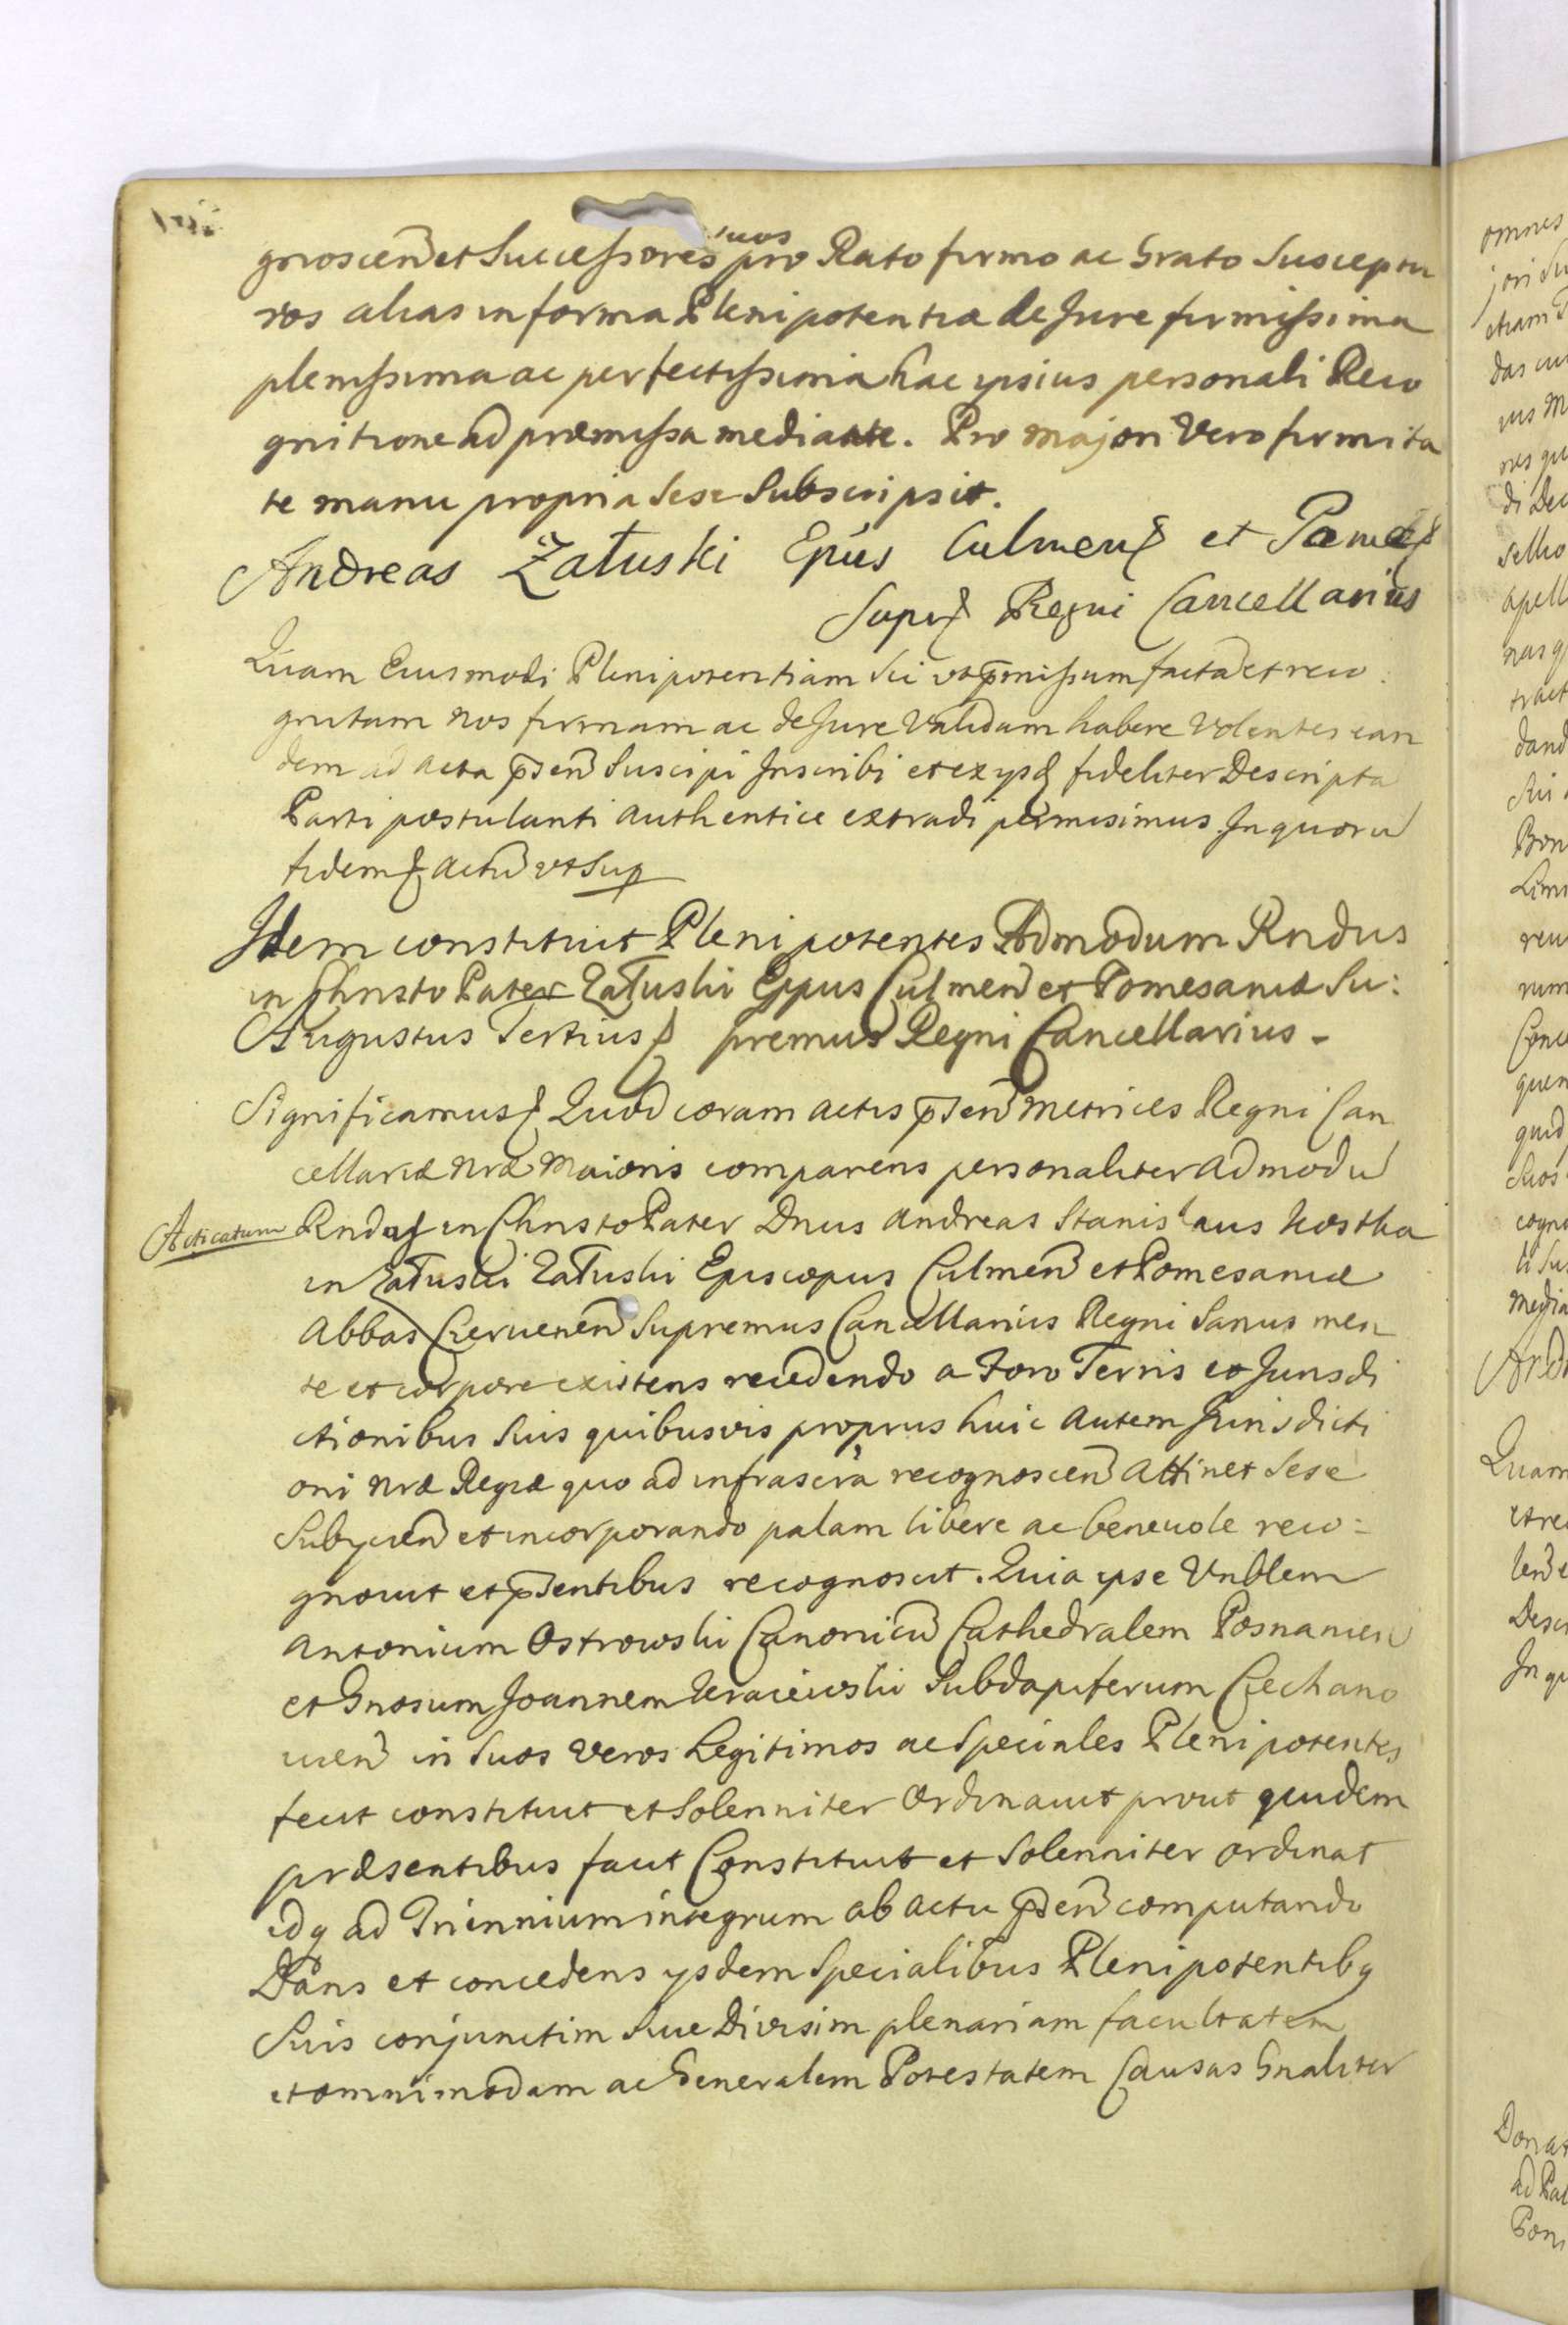 gnoscen et Successores suos pro Rato firmo ac Grato Susceptu
ros alias in forma Plenipotentiæ de Jure firmissima
plenissima ac perfectissima hac ipsius personali Reco
gnitione ad præmissa mediante. Pro majori Vero firmita
te manu propria sese Subscripsit.
Andreas Załuski Epus Culmen et Pomes
Supr Regni Cancellarius
Quam Eiusmodi Plenipotentiam sic ut pmissum facta et reco:
gnitam nos firmam ac de Jure Validam habere Volentes ean
dem ad acta psen Suscipi Inscribi et ex ijsd fideliter Descripta
Parti postulanti authentice extradi permisimus. In quoru
fidem actu ut Sup
Idem constituit Plenipotentes Admodum Rndus
in Christo Pater Załuski Eppus Culmen et Pomesaniæ Su:
premus Regni Cancellarius -
Augustus Tertius
Significamus Quod coram actis psen Metrices Regni Can
cellariæ nræ Maioris comparens personaliter admodu
Acticatum
Rndus in Christo Pater Dnus Andreas Stanislaus Kostka
in Załuski Załuski Episcopus Culmen et Pomesaniæ
Abbas Czerwenen Supremus Cancellarius Regni Sanus men
te et corpore existens recedendo a Foro Terris et Jurisdi
ctionibus suis quibusvis proprijs huic autem Jurisdicti
oni nræ Regiæ quo ad infrascra recognoscen attinet sese
Subijcien et incorporando palam libere ac benevole reco=
gnovit et psentibus recognoscit. Quia ipse Vnblem
Antonium Ostrowski Canonicu Cathedralem Posnanien
et Gnosum Joannem Kraiewski Subdapiferum Ciechano
vien in suos veros Legitimos ac Speciales Plenipotentes
fecit constituit et Solenniter Ordinavit prout quidem
præsentibus facit Constituit et Solenniter ordinat
idq ad Triennium integrum ab actu psen computando
Dans et concedens ijsdem Specialibus Plenipotentibq
Suis conjunctim sive Divisim plenariam facultatem
et omnimodam ac Generalem Potestatem Causas Gnaliter